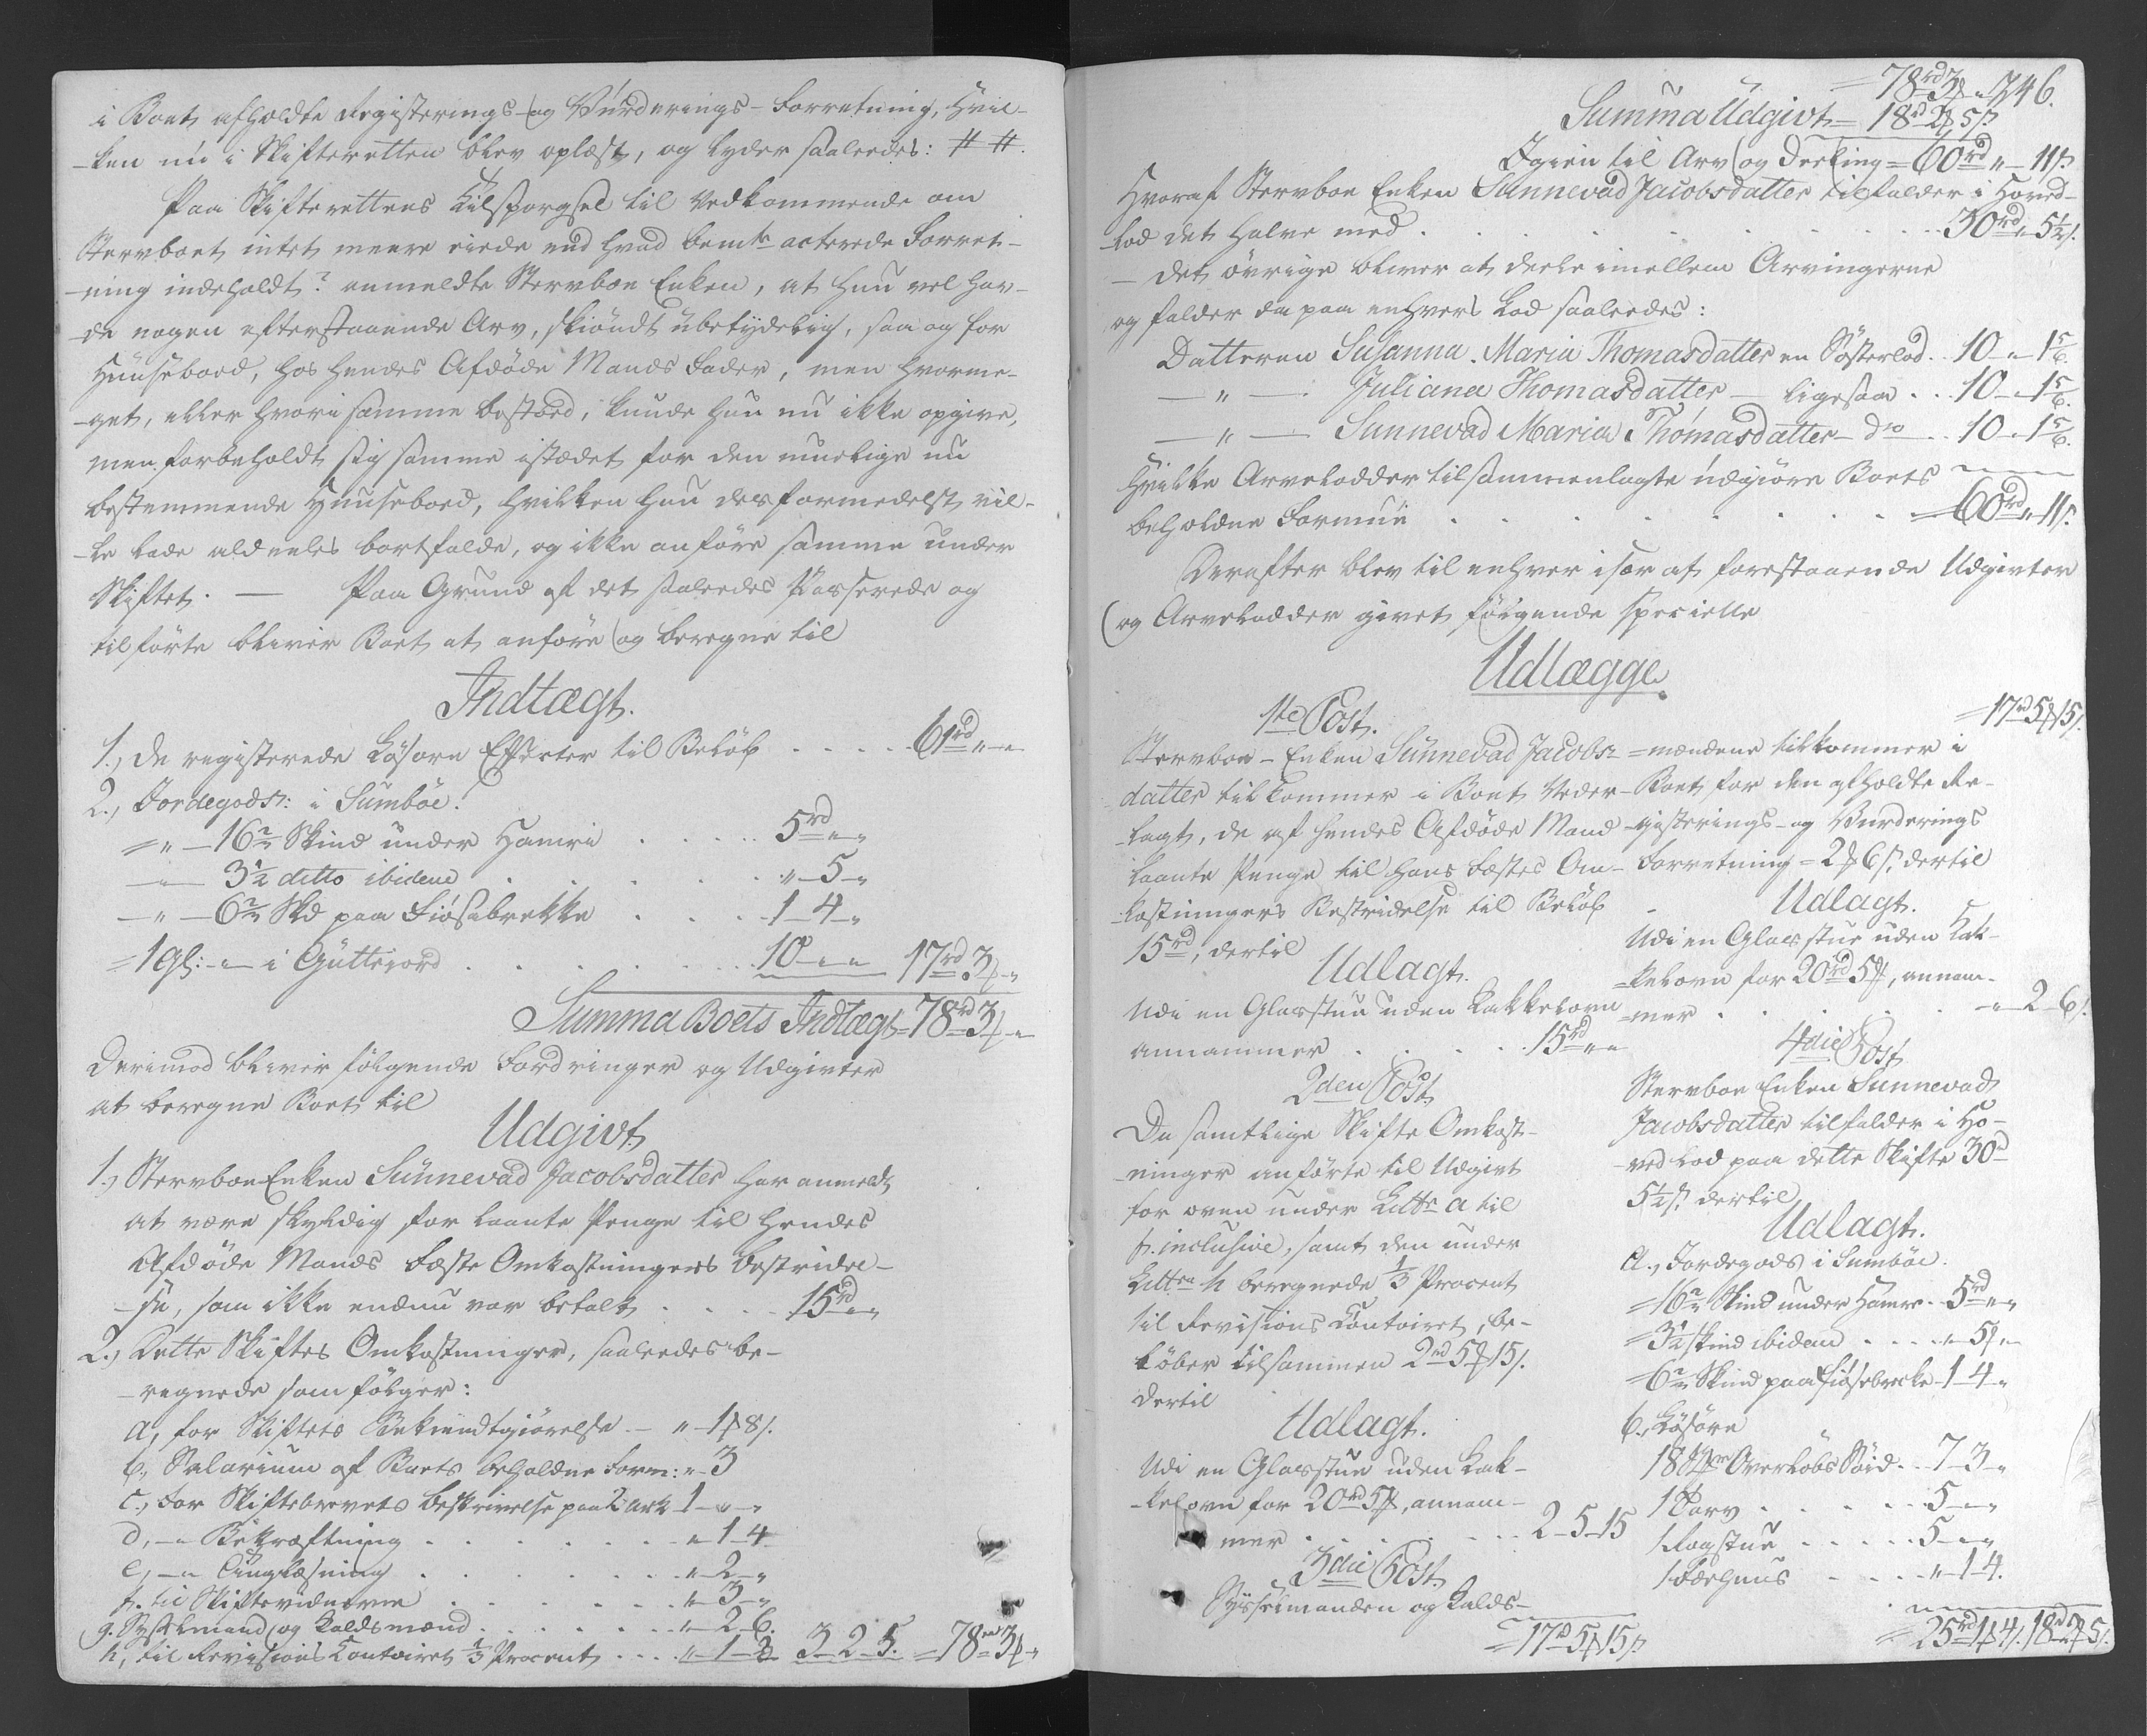 i Boet afholdte Registerings- og Vúrderings-Forretning, hvil-
-ken nú i Skifteretten blev oplæst, og lyder saaleedes: # #.
Paa Skifterettens Tilspørgsel til Vedkommende om
Stervboet intet meere eiede end hvad bemte acterede Forret-
-ning indeholdt? anmeldte Stervboe Enken, at hun vel hav-
-de nogen efterstaaende Arv, skiöndt úbetydelig, saa og for
Húúseboed, hos hendes Afdöde Mands Fader, men hvorme-
-get, eller hvori samme bestoed, kunde hun nu ikke opgive,
men forbeholdt sig samme istædet for den muelige nu
bestemmende Húúseboed, hvilken hun desformedelst vil-
-le lade aldeeles bortfalde, og ikke anföre samme under
Skiftet. — Paa Grund af det saaleedes Passerede og
tilförte bliver Boet at anföre og beregne til
Indtægt.
1., De registerede Lösöre Effecter til Belöb . . . . 61rd „ „
2., Jordegods: i Sumböe:
= „ — 16 Skind under Hamri . . . . 5rd „ „
— 3½ ditto ibidem . . . . „ 5 „
— „ — 6 Skd paa Fiösabrekke . . . 1 4 „
= 1 gl: „ i Gúttejord . . . . 10 „ „ 17rd 3 „
Summa Boets Indtægt = 78rd 3 „
Derimod bliver fölgende Fordringer og Udgivter
at beregne Boet til
Udgivt
1., Stervboe Enken Súnnevad Jacobsdatter har anmeldt
at være skyldig for laante Penge til hendes
Afdöde Mands Fæste Omkostningers bestridel-
-se, som ikke endnu var betalt . . . . 15rd „ „
2., Dette Skiftes Omkostninger, saaleedes be-
-regnede som fölger:
a, for Skiftets Bekiendtgiörelse — „ 1 8
b., Salarium af Boets beholdne Form: „ 3
c., For Skiftebrevets beskrivelse paa 2 Ark 1 „ „
d, — „ Bekræftning . . . . „ 1 4
e, — „ Tinglæsning . . . . „ 2 „
f. til Skiftevidnerne . . . . „ 3 „
g. Sysselmand og Kaldsmænd . . . . „ 2 6.
h, til Revisions Contoiret ⅓ Procent . . . „ 1 3 3 2 5. = 78rd 3 „
= 78rd 3 „ 246.
Summa Udgivt = 18rd 2 5
Igien til Arv og Deeling = 60rd „ 11
Hvoraf Stervboe Enken Sunnevad Jacobsdatter tilfalder i Hoved-
-lod det halve med . . . . 30rd „ 5½
— Det övrige bliver at deele imellem Arvingerne
og falder da paa enhvers Lod saaleedes:
Datteren Susanna Maria Thomasdatter en Sösterlod . . 10 „ 1 5/6
— „ — Juliana Thomasdatter — ligesaa . . 10 „ 1 5/6.
— „ — Sunnevad Maria Thomasdatter — do . . 10 „ 1 5/6.
Hvilke Arvelodder tilsammenlagte údgiöre Boets
beholdne Formúe . . . . = 60rd „ 11
Derefter blev til enhver især at forestaaende Udgivter
og Arvelodder givet fölgende specielle
Udlægge.
1te Post.
Stervboe-Enken Súnnevad Jacobs-
datter tilkommer i Boet Veder-
-lagt, de af hendes Afdöde Mand
laante Penge til hans Fæstes Om-
-kostningers Bestridelse til Belöb
15rd, dertil
Udlagt.
Udi en Glasstue uden Kakkelovn
annammer . . . . 15rd „ „
2den Post.
De samtlige Skifte Omkost-
-ninger anförte til Udgivt
for oven under Littr a til
f. inclusive, samt den under
Littra h beregnede ⅓ Procent
til Revisions Contoiret, be-
löber tilsammen 2rd 5 15
dertil
Udlagt.
Udi en Glasstue uden Kak-
-kelovn for 20rd 5, annam-
mer . . . . 2 5 15
3die Post.
Sysselmanden og Kalds-
= 17rd 5 15
= 17rd 5 15
= mændene tilkommer i
Boet for den afholdte Re-
-gisterings- og Vurderings
Forretning = 2 6 dertil
Udlagt.
Udi en Glasstue uden Kak-
=kelovn for 20rd 5, annam-
=mer . . . . „ 2 6
4die Post
Stervboe Enken Sunnevad
Jacobsdatter tilfalder i Ho-
ved Lod paa dette Skifte 30rd
5½ dertil
Udlagt.
a., Jordegods i Sumböe.
= 16 Skind under Hamre . . 5rd „ „
= 3½ skind ibidem . . . . „ 5 „
= 6 Skind paa Fiösebrecke 1 4 „
b., Lösöre
18 Overlöbs Söid . . 7 3 „
1 Tarv . . . . 5 „ „
1 Rogstue . . . . 5 „ „
1 Færhuus . . . . „ 1 4.
= 25rd 1 4 18rd 2 5